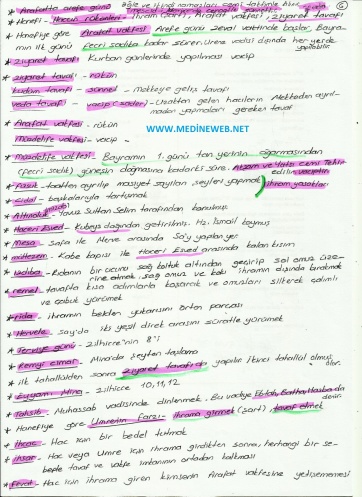 * Arafatta arefe günü öğle ve ikindi namazları cemi takdimle kılınır
* Hanefi - Haccın rükünleri - ihram (şart), Arafat vakfesi, ziyaret tavafı
* Hanefiye göre Arafat vakfesi Arefe günü zeval vaktinde başlar, Bayra-
mın ilk günü fecri sadıka kadar sürer. Urene vadisi dışında her yerde yapılabilir
* ziyaret tavafı Kurban günlerinde yapılması vacip
* ziyaret tavafı - rükün
kudüm tavafı - sünnet - Mekkeye geliş tavafı
veda tavafı - vacip (sader) - Uzaktan gelen hacıların Mekkeden ayrıl-
madan yapmaları gereken tavaf
* Arafat vakfesi - rükün
Müzdelife vakfesi - vacip
WWW.MEDİNEWEB.NET
* Müzdelife vakfesi - Bayramın 1. günü tan yerinin ağarmasından
(fecri sadık) güneşin doğmasına kadarki süre. Akşam ve Yatsı cemi Tehir edilir, vaciptir
* Fasık - taatten ayrılıp masiyet sayılan şeyleri yapmak
* Cidal - başkalarıyla tartışmak
ihram yasakları
* Altınoluk - Yavuz Sultan Selim tarafından konulmuş
* Haceri Esved - Kubeys dağından getirilmiş. Hz. İsmail koymuş
* Mesa - Safa ile Merve arasında Sa'y yapılan yer
* mültezem - Kabe kapısı ile Haceri Esved arasında kalan kısım
* ıtdıba - Ridanın bir ucunu sağ koltuk altından geçirip sol omuz üze-
rine atmak, sağ omuz ve kolu ihramın dışında bırakmak
* remel - tavafta kısa adımlarla koşarak ve omuzları silkerek çalımlı
ve çabuk yürümek
* rida - ihramın belden yukarısını örten parçası
* Hervele - say'da iki yeşil direk arasını süratle yürümek
* Terviye günü - Zilhicce'nin 8'i
* Remyi cimar - Mina'da şeytan taşlama
* ilk tahallülden sonra ziyaret tavafı da yapılır ikinci tahallül olmuş olur.
* Eyyamı Mina - Zilhicce 10, 11, 12
* Tahsib - Muhassab vadisinde dinlenmek. Bu vadiye Ebtah, Batha, Hasba da denir.
* Hanefiye göre Umrenin Farzı - ihrama girmek (şart), tavaf etmek
* ihcac - Hac için bir bedel tutmak
* ihsar - Hac veya Umre için ihrama girdikten sonra, herhangi bir se-
beple tavaf ve vakfe imkanının ortadan kalkması
* fevat - Hac için ihrama giren kimsenin Arafat vakfesine yetişememesi